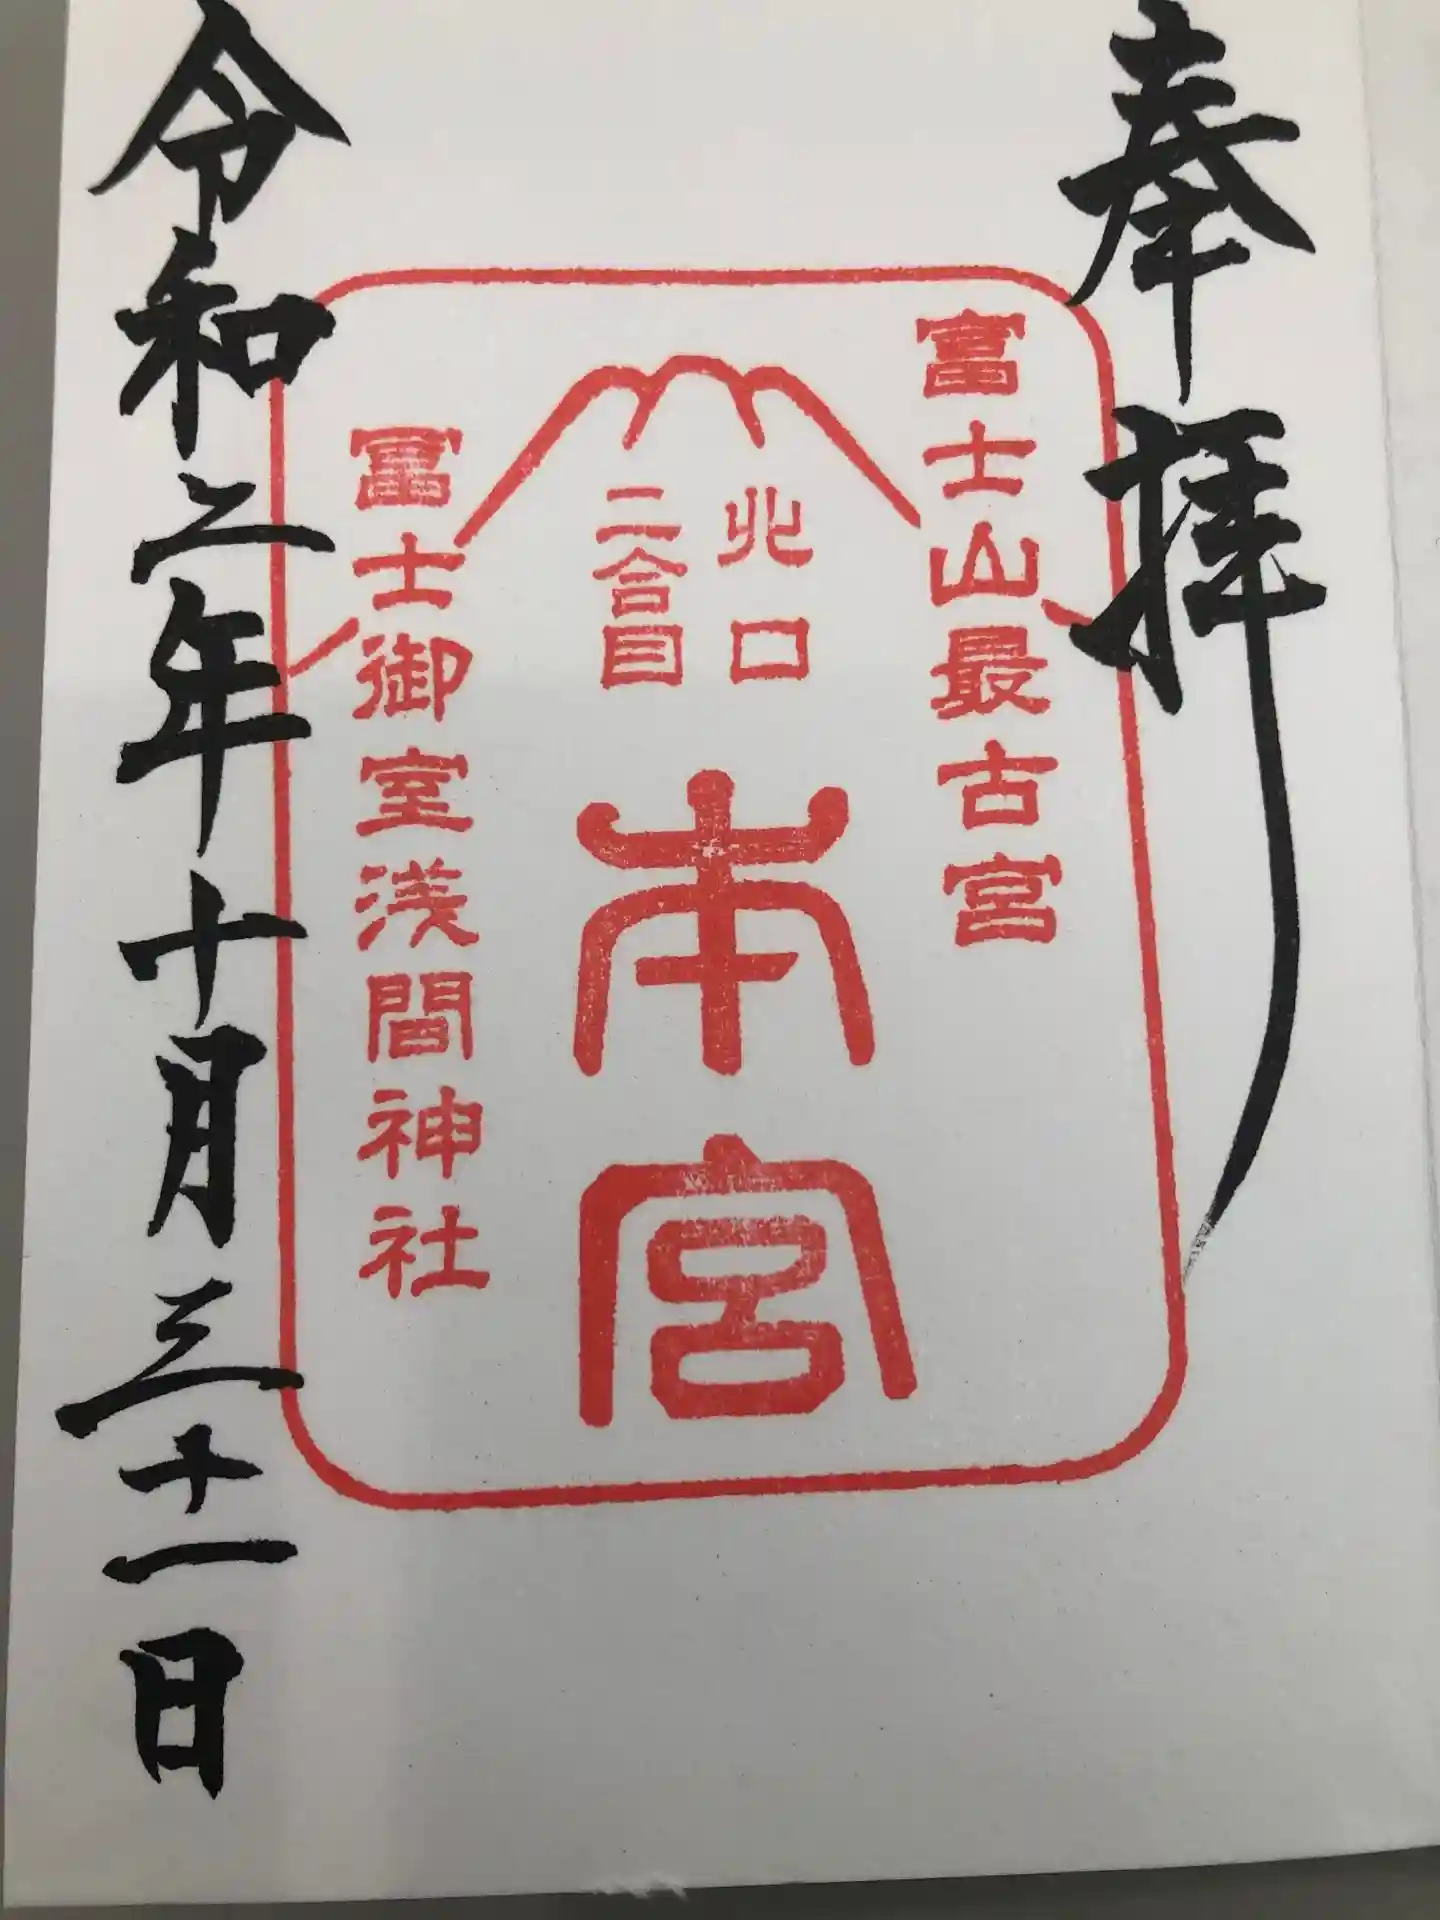 奉拝
富士山最古宮
北口
二合目
本宮
冨士御室浅間神社
令和二年十月三十一日